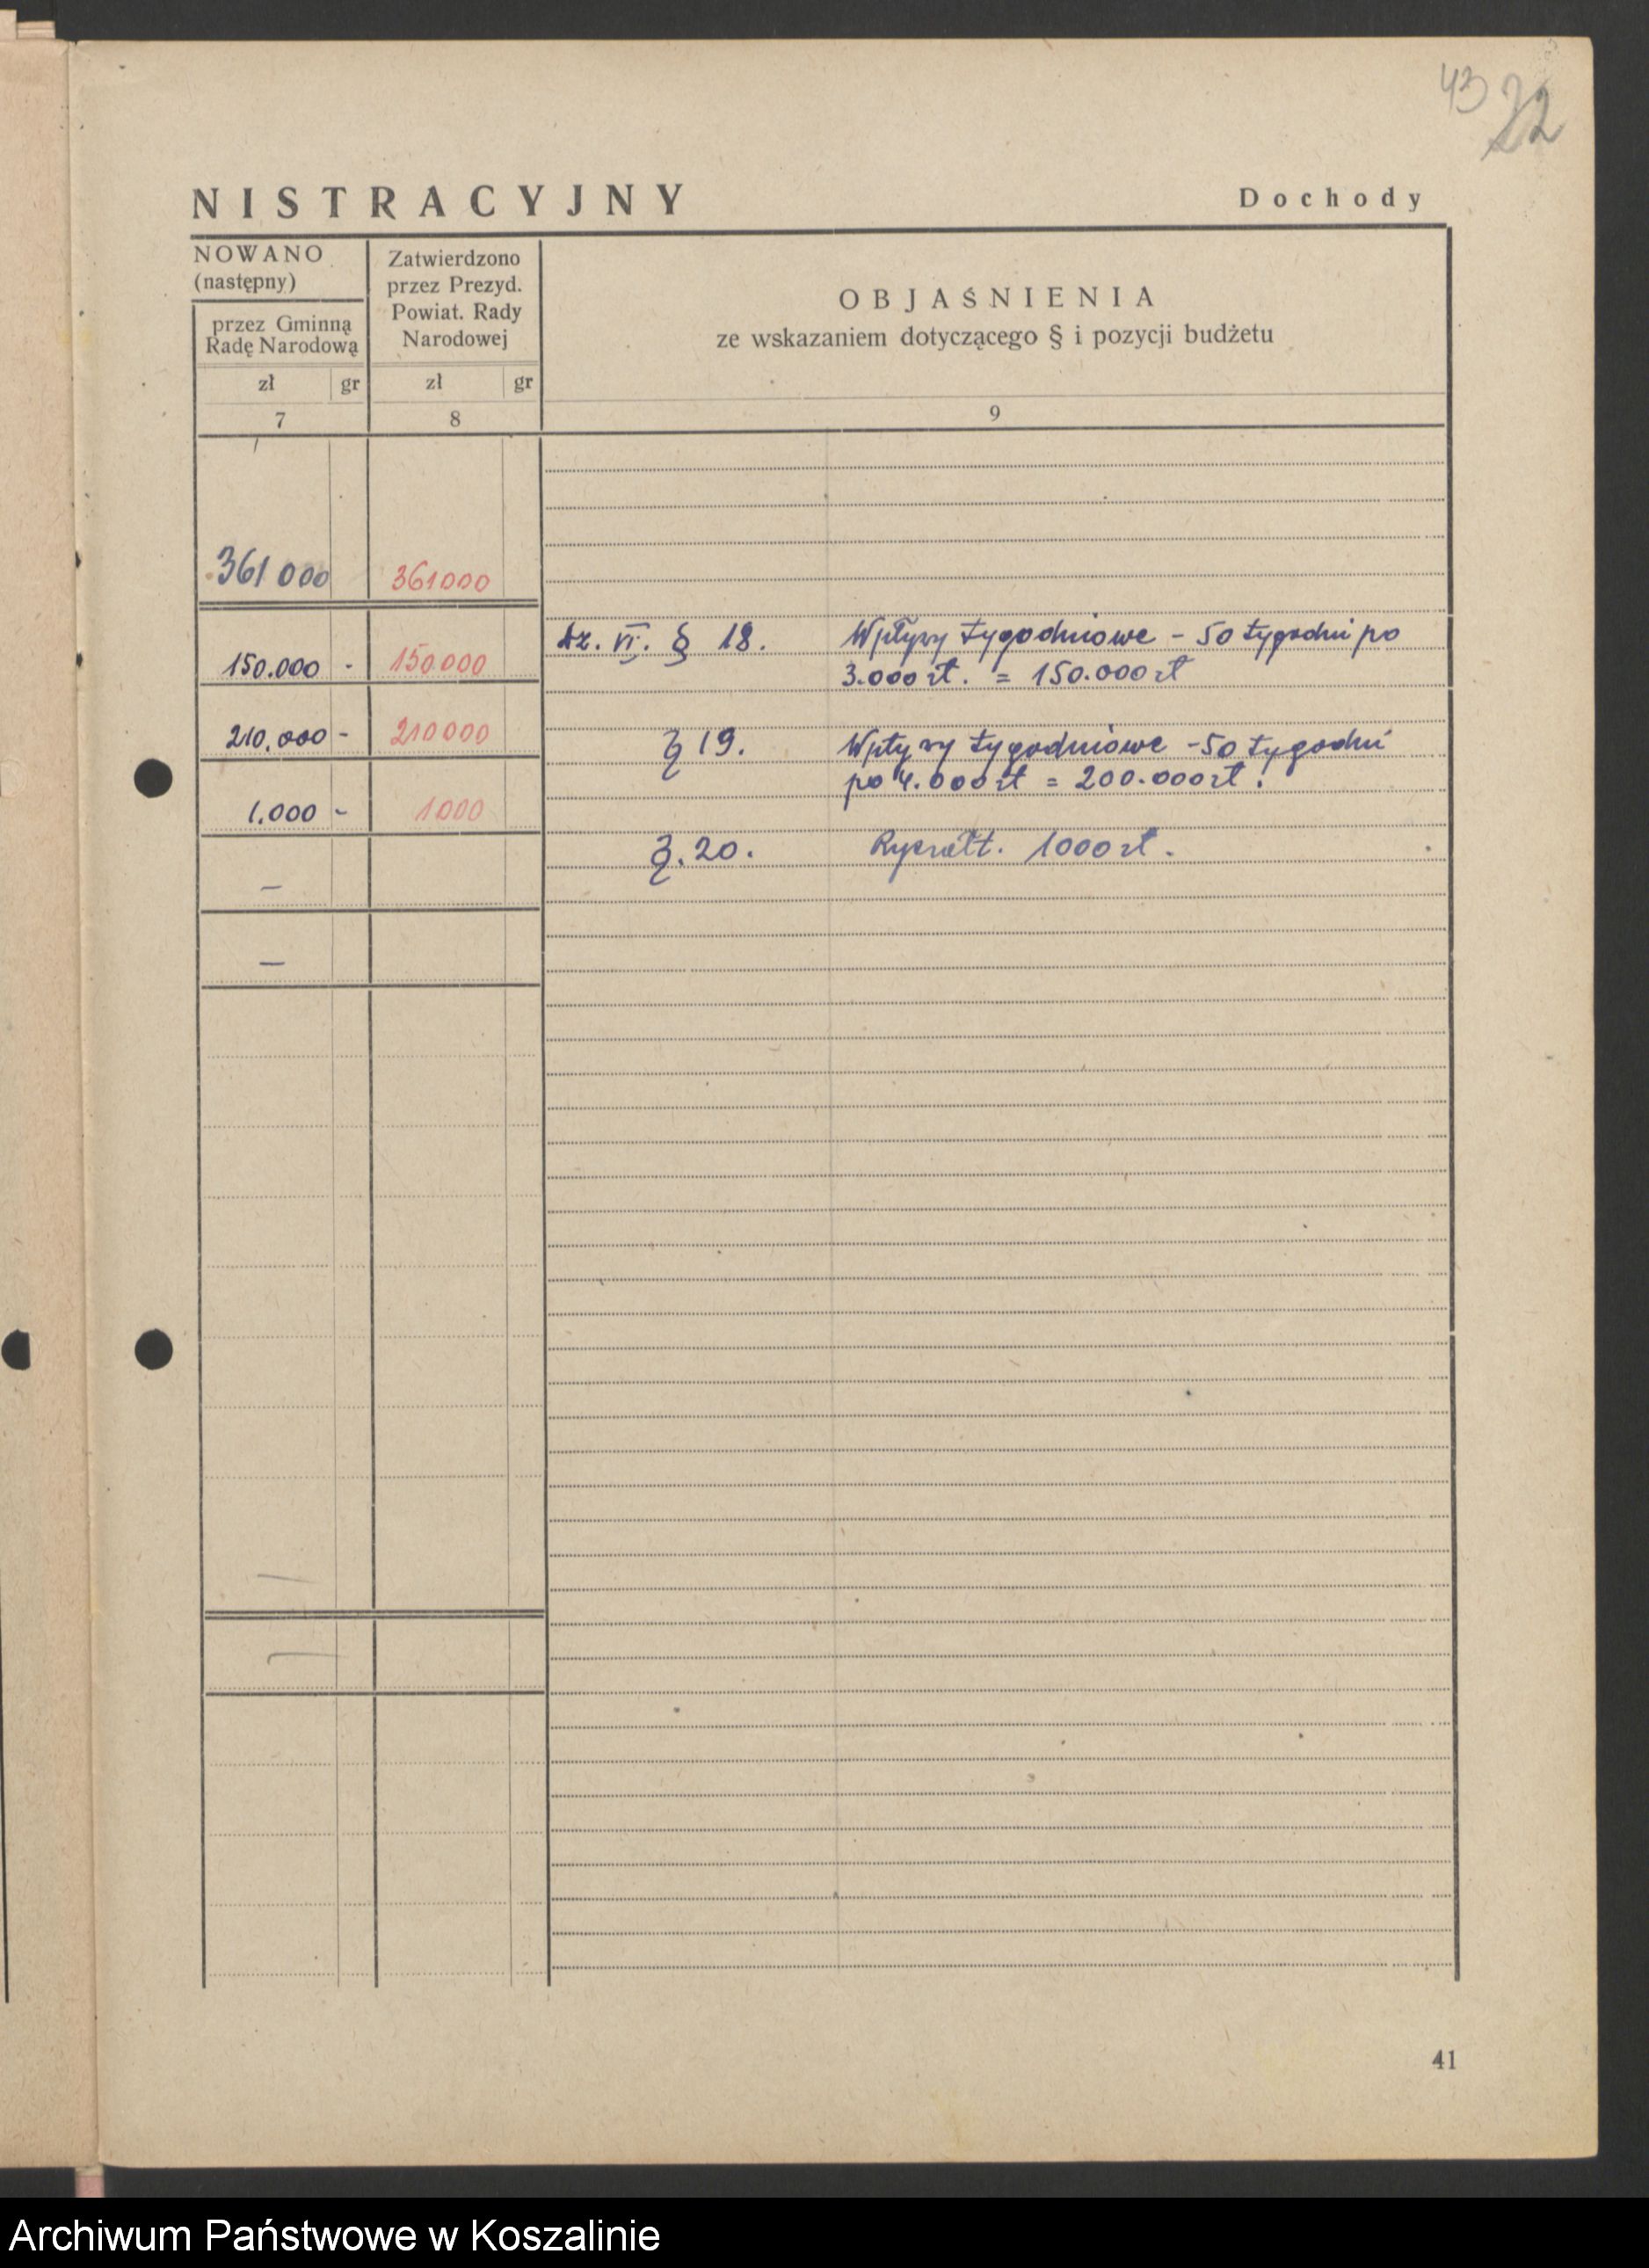 43 22
NISTRACYJNY Dochody
NOWANO
(następny)
przez Gminną
Radę Narodową
Zatwierdzono
przez Prezyd.
Powiat. Rady
Narodowej
OBJAŚNIENIA
ze wskazaniem dotyczącego § i pozycji budżetu
zł gr zł gr
7 8 9
361 000 361000
150.000 - 150000 dz. VI. § 18. Wpływy tygodniowe - 50 tygodni po
3.000 zł. = 150.000 zł
210.000 - 210000 § 19. Wpływy tygodniowe - 50 tygodni
po 4.000 zł = 200.000 zł.
1.000 - 1000
§. 20. Ryczałt. 1000 zł.
-
-
41
Archiwum Państwowe w Koszalinie